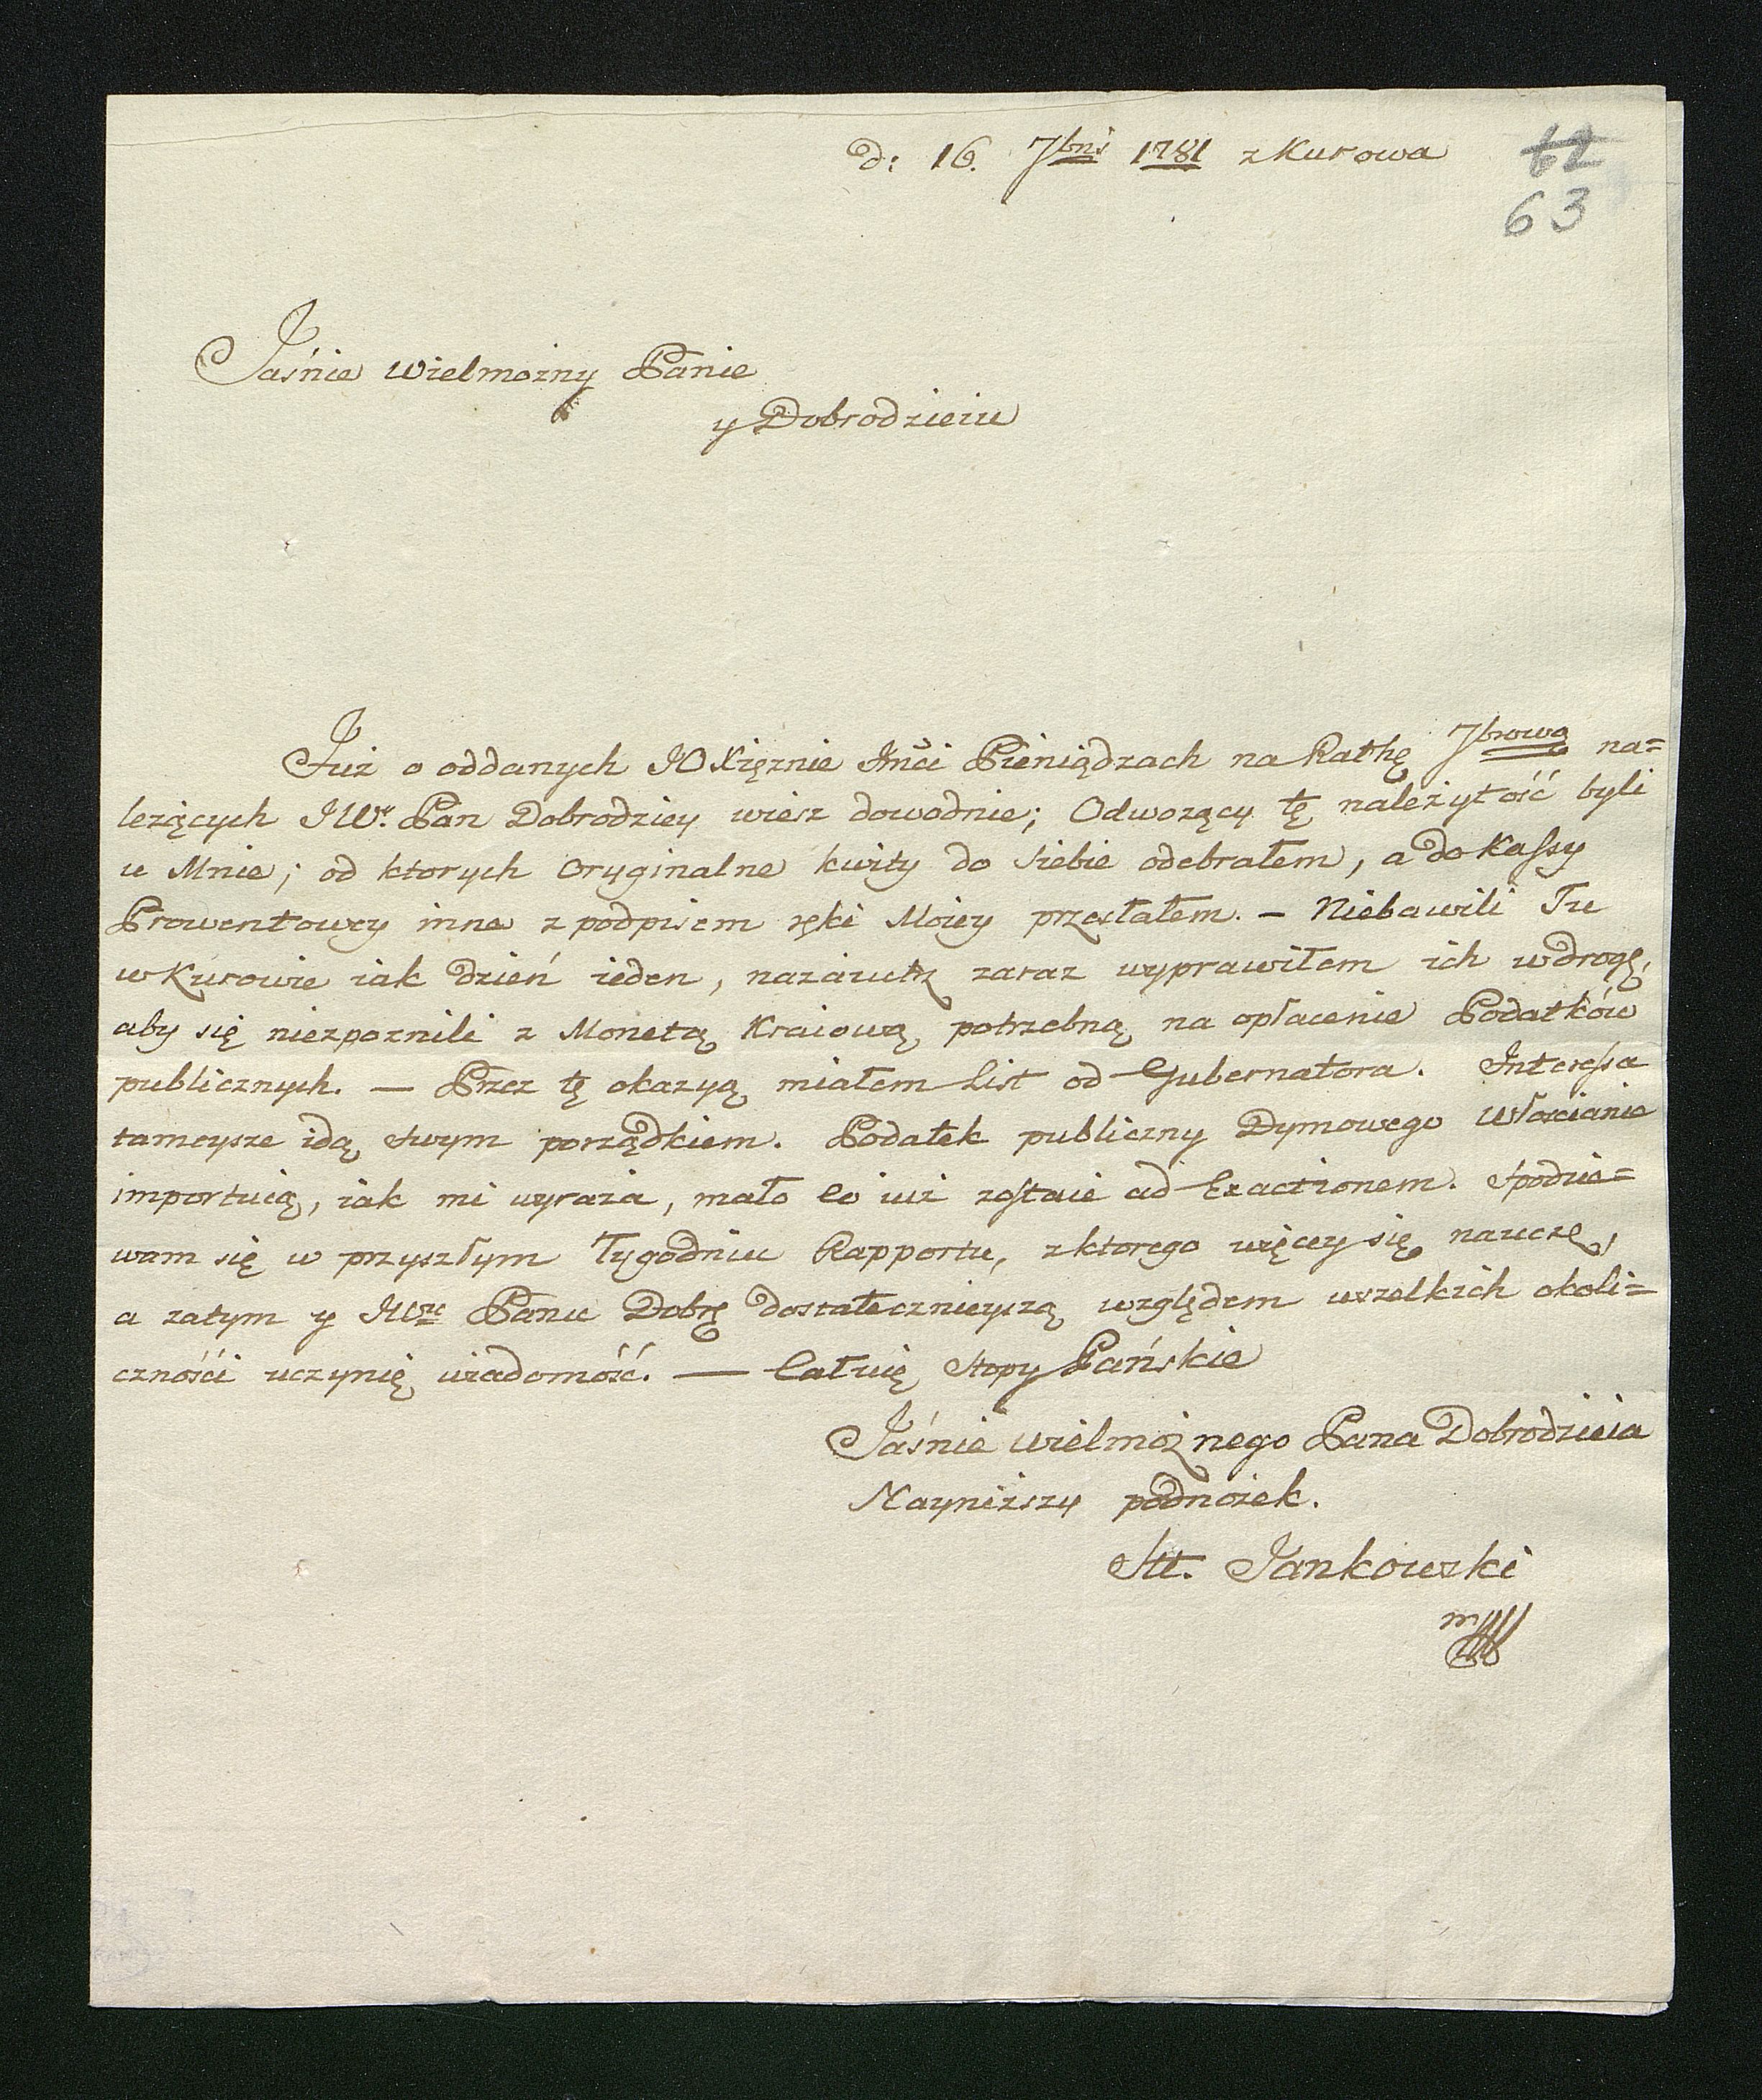 d: 16. 7bris 1781 z Kurowa
62
63
Jaśnie Wielmozny Panie
y Dobrodzieiu
Juz o oddanych JO Xięznie Jmći Pieniądzach na Rathę 7browę na=
lezących JWy. Pan Dobrodziey wiesz dowodnie; Odwozący tę należytość byli
u Mnie; od ktorych Oryginalne kwity do siebie odebrałem, a do Kassy
Prowentowey inne z podpisem ręki Moiey przesłałem. — Niebawili Tu
w Kurowie iak dzień ieden, nazaiutrz zaraz wyprawiłem ich w drogę,
aby się niezpoznili z Monetą Kraiową potrzebną na opłacenie Podatków
publicznych. — Przez tę okazyą miałem List od Gubernatora. Interessa
tameysze idą swym porządkiem. Podatek publiczny Dymowego Włoscianie
importuią, iak mi wyraża, mało co iuż zostaie ad Exactionem. Spodzie=
wam się w przyszłym Tygodniu Rapportu, z ktorego więcey się nauczę,
a zatym y JWmu Panu Dobrę dostatecznieyszą względem wszelkich okoli=
cznośći uczynię wiadomość. — Całuię Stopy Pańskie
Jaśnie Wielmoznego Pana Dobrodzieia
Nayniższy podnożek.
St. Jankowski